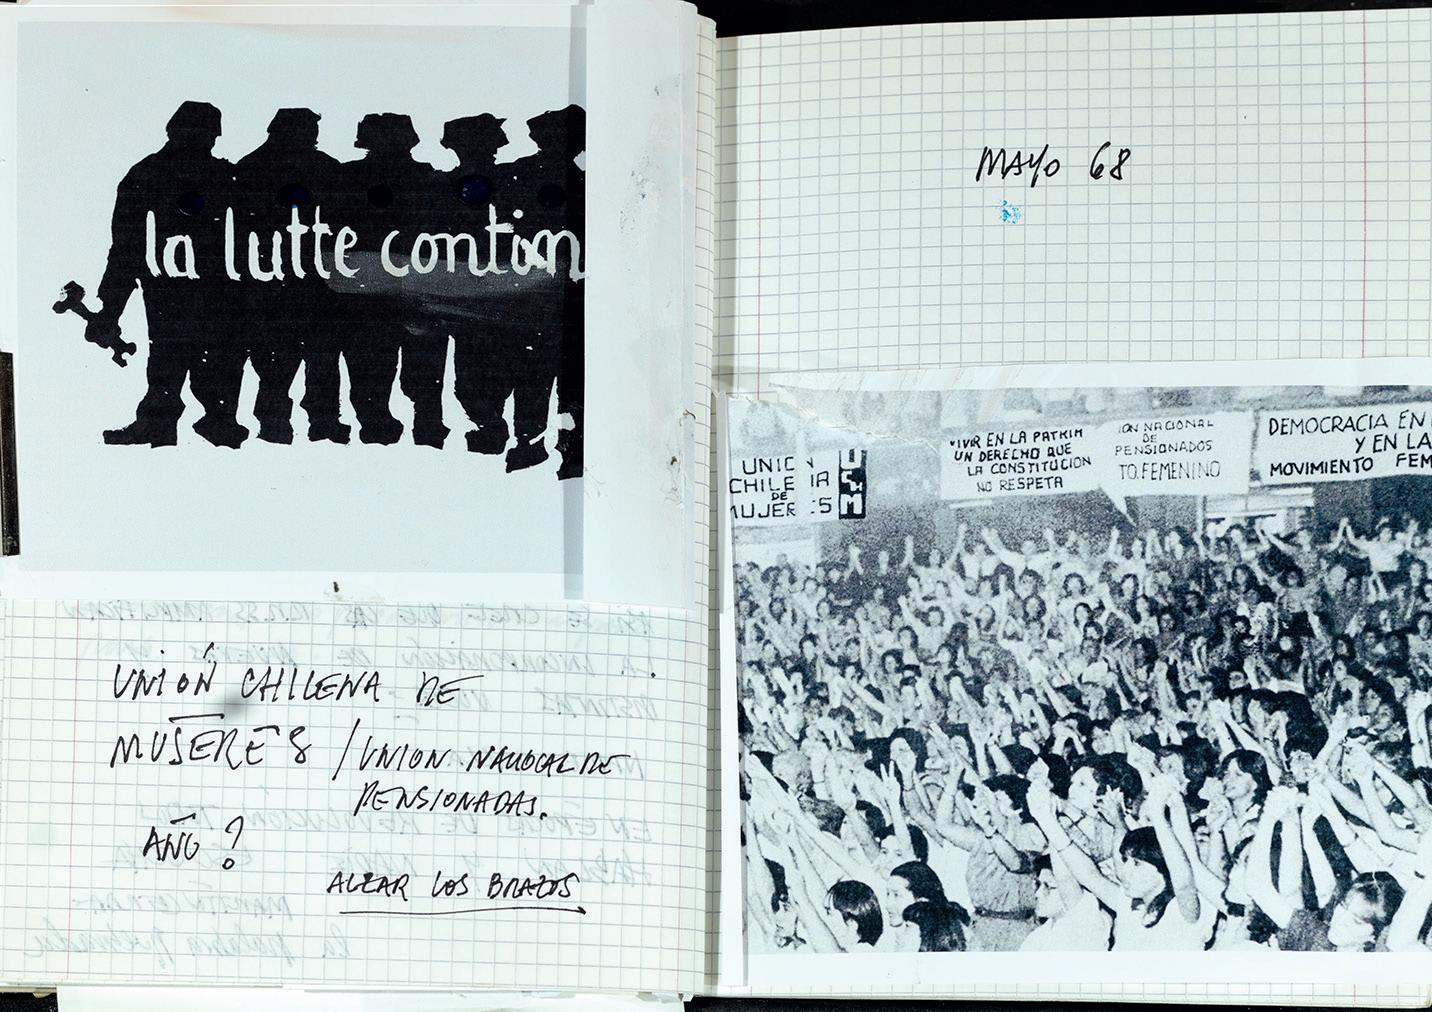 la lutte contin
UNIÓN CHILENA DE
MUJERES / UNION NACIONAL DE
PENSIONADAS.
AÑO?
ALZAR LOS BRAZOS
MAYO 68
UNIC N
CHILE IA
DE
MUJER ES
USM
VIVIR EN LA PATRIA
UN DERECHO QUE
LA CONSTITUCION
NO RESPETA
ION NACIONAL
DE
PENSIONADOS
TO. FEMENINO
DEMOCRACIA EN
Y EN LA
MOVIMIENTO FEM